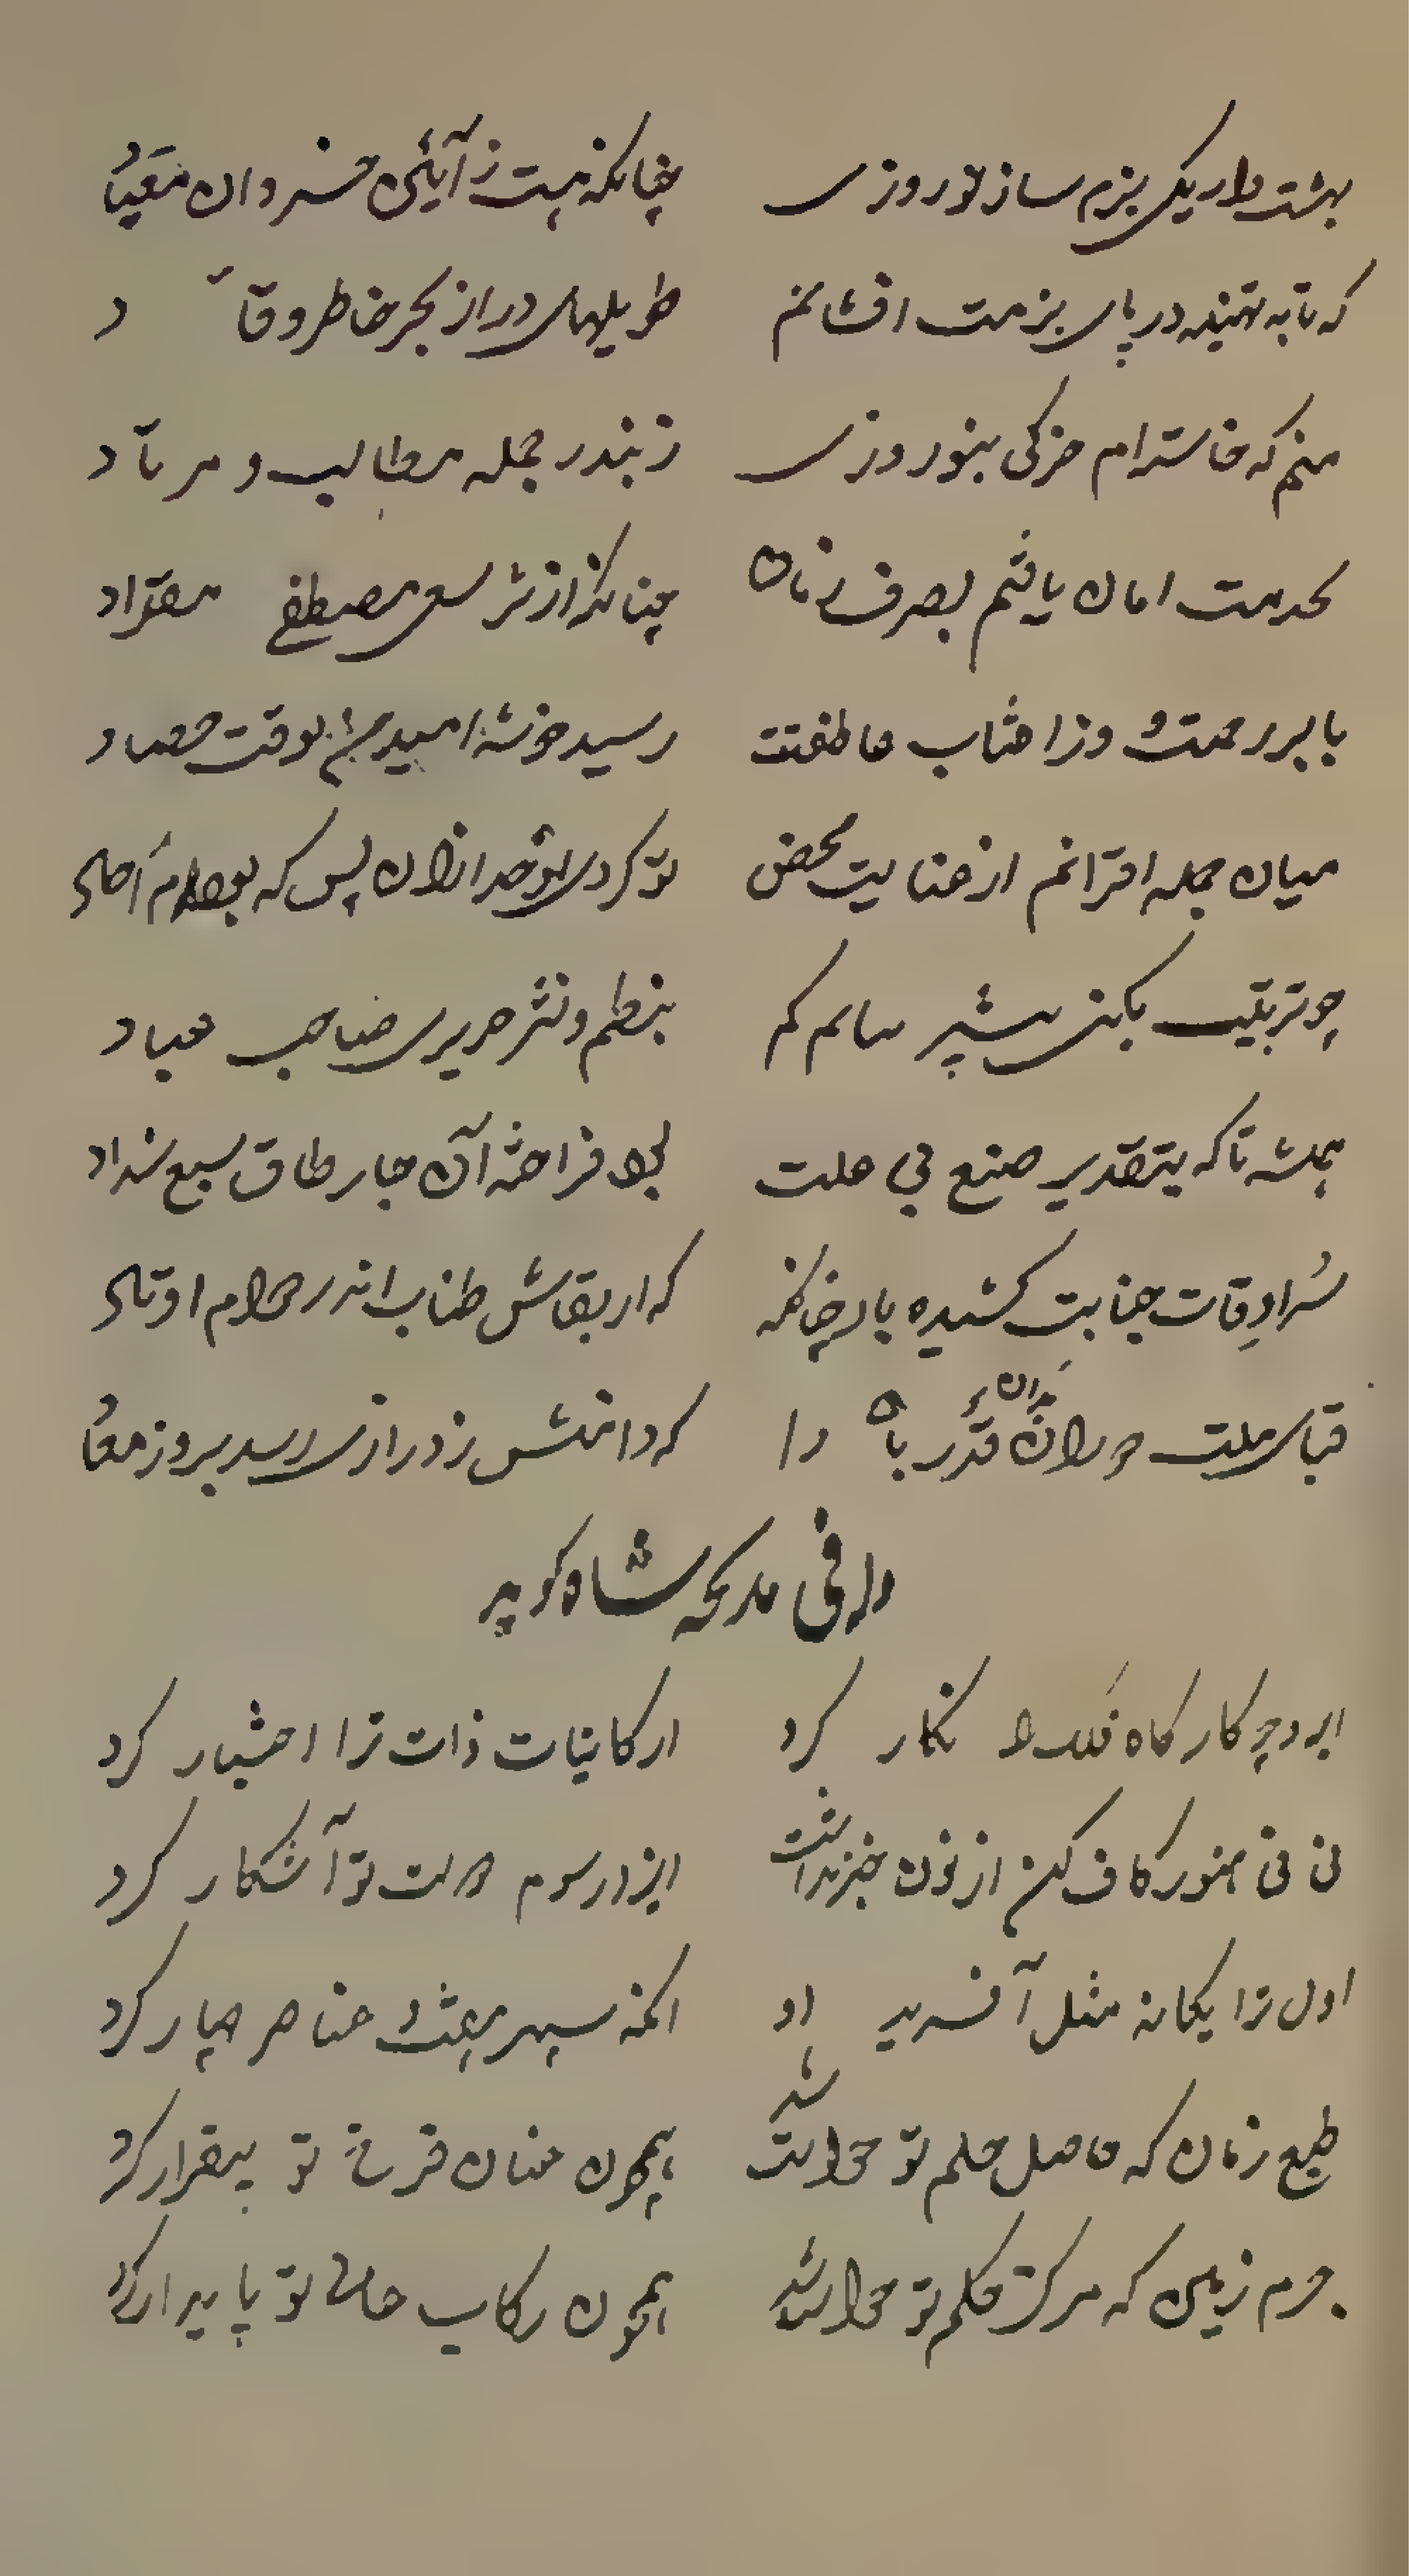 بهشت وار یکی بزم ساز نوروزی چنانکه هست ز آیین خسروان معتاد
که تا به تهنیه در پای بزمت افشانم طویلهای در از بحر خاطر وقاد
منم که خاسترام جزکی بنوروزی ز بندر جمله مطالب و مر تاد
بحرمت امان یافتم بصرف زمان چنانکز از شر سعی مصطفی مقواد
بابر رحمت و ز آفتاب عاطفتت رسید خوشه امید من بوقت حصاد
میان جمله اقرانم از عنایت محض تو کردی اوحد ازان پس که بودم آحاد
چو تربیت بکنی بیشتر سالم کم بنظم و نثر حریری صاحب عباد
همیشه تا که بتقدیر صنع بی علت بود فراخته آن چار طاق سبع شداد
سرادقات جنابت کشیده باد چنانکه که از بقاش طناب اندر دوام اوتاد
قبای ملت و دولت بدان قدر باد را که دامنش ز درازی رسد بروز معاد
وله فی مدیحه شاه کوبر
ایزد چو کارگاه فلک را نگار کرد از کاینات ذات ترا اختیار کرد
نی نی هنوز کاف کن از نون خبر نداشت ایزد رسوم دولت تو آشکار کرد
اول ترا یگانه مثل آفرید او آنگه سپهر هفت و عناصر چهار کرد
طبع زمان که حاصل حلم تو خواست شد همچون عنان فرخ تو بیقرار کرد
جرم زمین که مرکز حکم تو خواست شد همچون رکاب عالی تو پایدار کرد